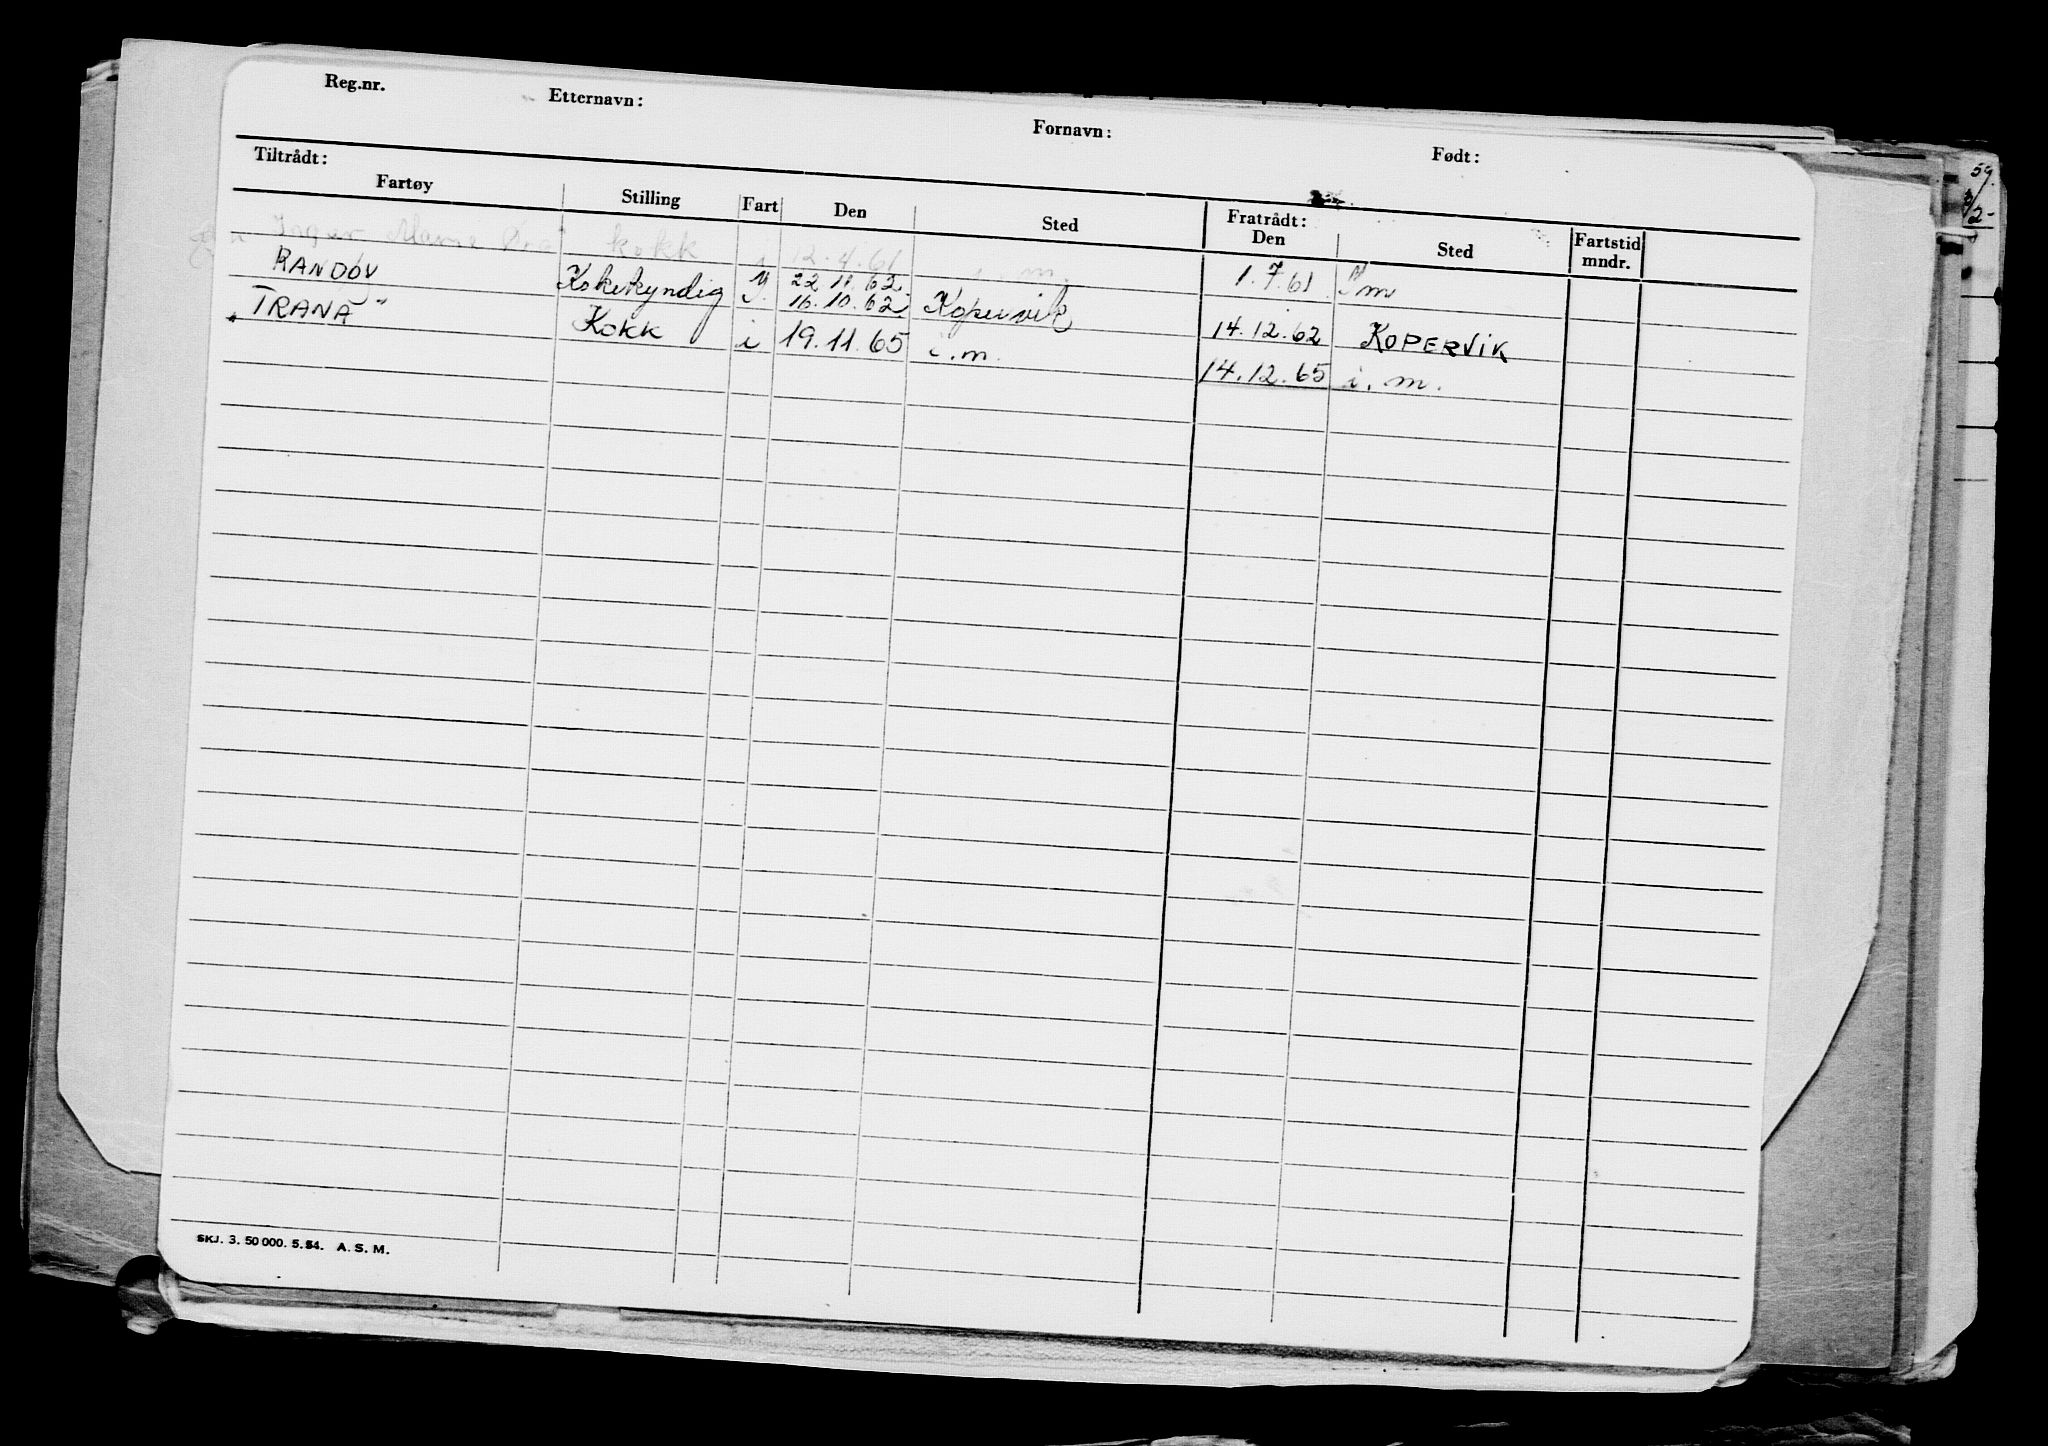 Reg.nr. Etternavn: Fornavn: Født:
Tiltrådt: Fratrådt:
Fartøy Stilling Fart Den Sted Den Sted Fartstid mndr.
Inger Marie kokk i 12.4.61 i.m. 1.7.61 im
RANDØY Kokekyndig 22.11.62
16.10.62 Kopervik 14.12.62 KOPERVIK
"TRANA" Kokk i 19.11.65 i.m. 14.12.65 i.m.
SKJ. 3. 50 000. 5.54. A. S. M.
59.